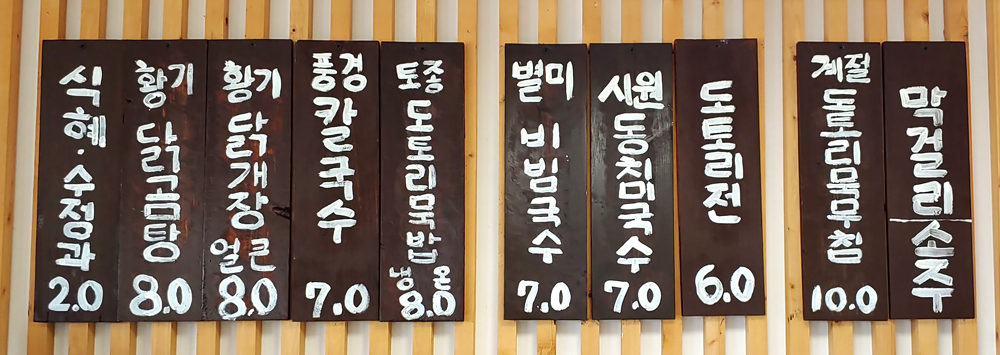 식혜·수정과
2.0
황기
닭곰탕
8.0
황기
닭개장
얼큰
8.0
풍경
칼국수
7.0
토종
도토리묵밥
냉 온
8.0
별미
비빔국수
7.0
시원
동치미국수
7.0
도토리전
6.0
계절
도토리묵무침
10.0
막걸리
소주